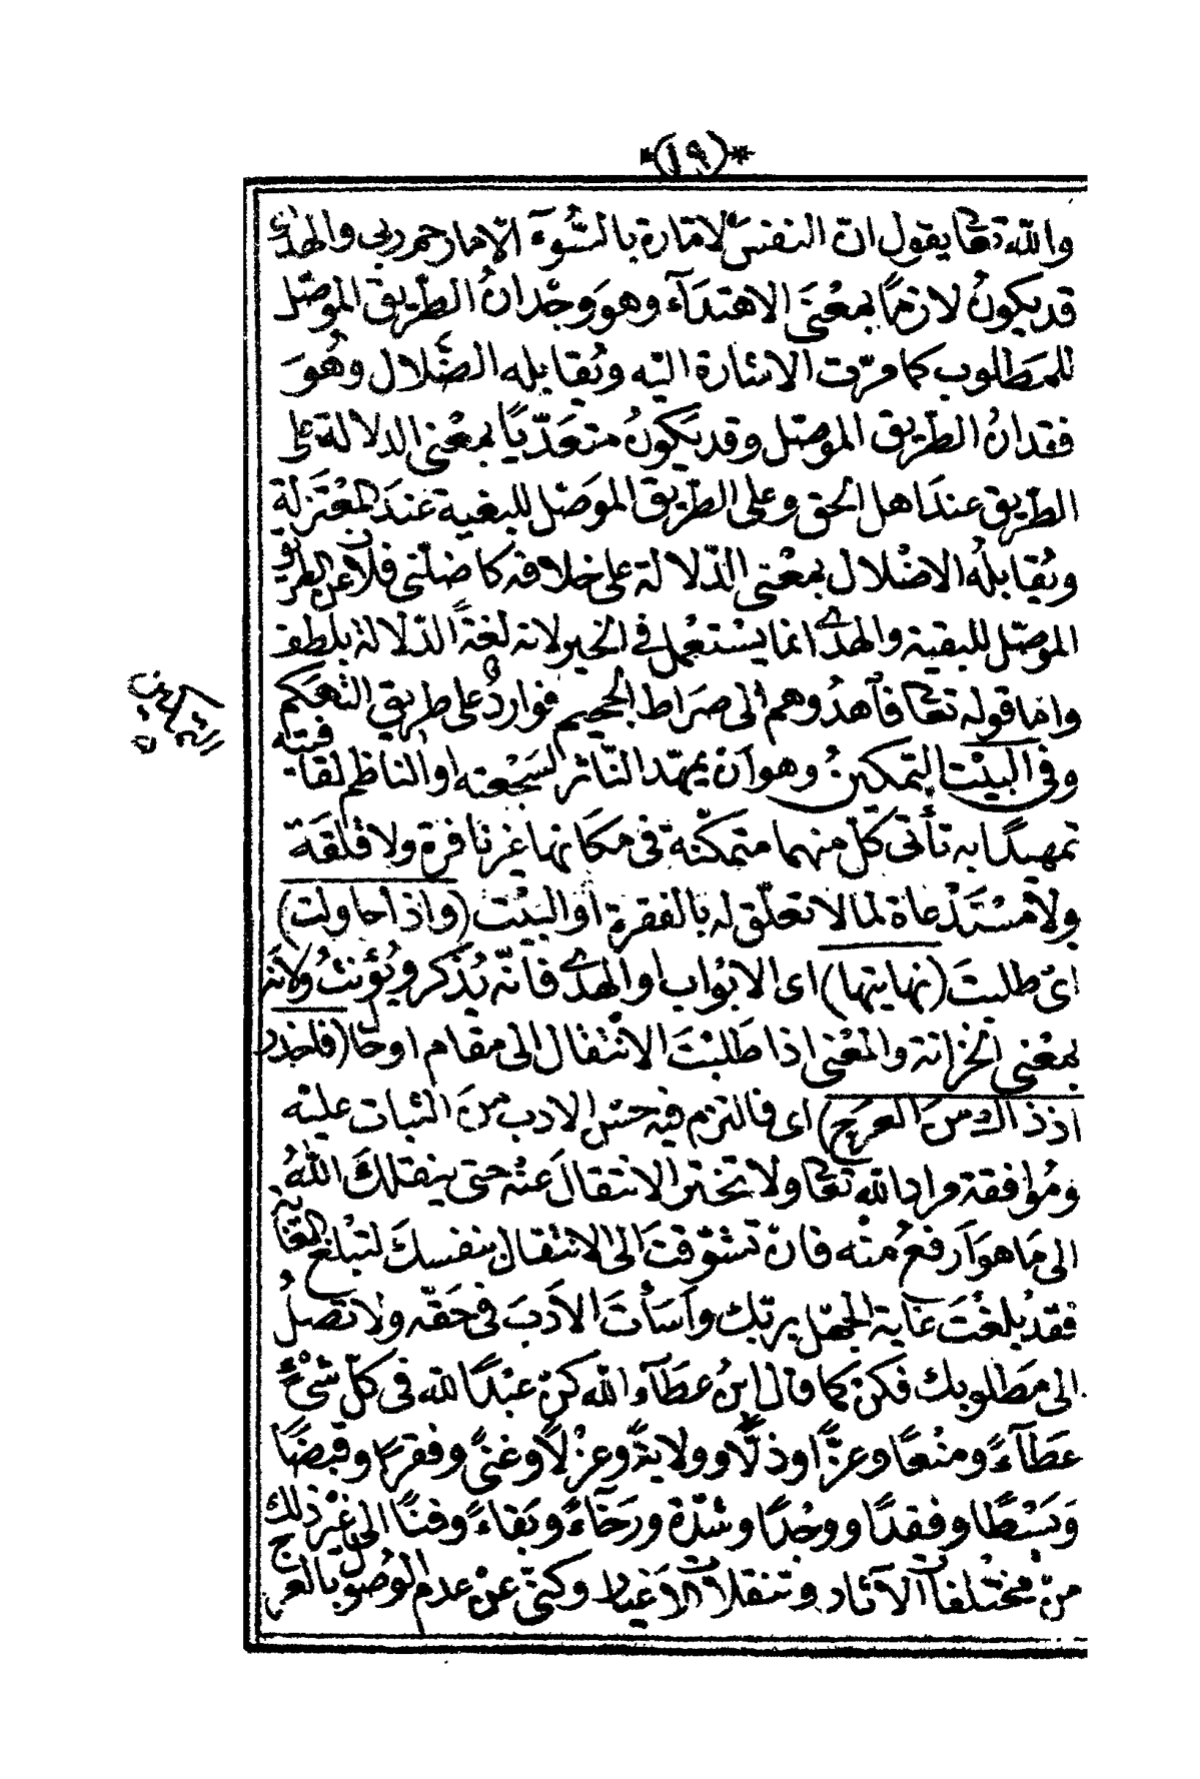 *(١٩)*
والله تعا يقول ان النفس لامّارة بالسُّوءٓ الّا ما رحم ربى والهدى
قد يكونُ لازمًا بمعْنىَ الاهتدَآء وهوَ وجْدانُ الطّريق الموصّل
للمَطلوب كما مرّت الاشارة اليْه ويُقابله الضّلال وهُوَ
فقدانُ الطّريق الموصّل وقد يَكونُ متعَدّيًا بمعْنى الدلالة على
الطّريق عندَ اهل الحق وعلى الطّريق الموَصّل للبغية عندَ المعْتَزلة
ويُقابلهُ الاضْلال بمعْنى الدّلالة على خلافه كاضلّنى فلان عن الطريق
الموصّل للبقية والهدى انما يسْتعْمل فى الخير لانه لغةً الدّلالة بلطف
وامّا قوله تعا فاهْدُوهم الى صرَاط الجحيم فواردٌ على طريق التّهَكم
وفى البيْت التمكينُ وهو اَن يمهّد النّاثر لسَجْعته او الناظم لقافيته
تمهيدًا به تأتى كلّ منهما متمكّنة فى مكانها غير نافرة ولا قلقَة
ولا مسْتَدْعاة لما لا تعلّق له بالفقرة او البيْت (واذا حاولت)
اىْ طلبتَ (نهايتها) اى الابْواب او الهدى فانّه يُذكر ويُؤنثُ ولانه
بمعْنى الخزانة والمعْنى اذا طَلبْتَ الانْتقال الى مقام او حال (فاحذر
اذ ذاك من العرج) اى فالتزم فيه حسْن الادب منَ الثبات عليْه
ومُوافقة مراد الله تعا ولا تختر الانتقالَ عنْه حتى ينقلكَ اللهُ
الى مَا هوَ اَرفعُ منْه فانّ تشوّقتَ الى الانتقال بنفسكَ لتبْلغ الغاية
فقدْ بلغْتَ غاية الجهْل بربّك واَسَأتَ الاَدبَ فى حَقّه ولا تصلُ
الى مَطلوبك فكنْ كما قال ابنُ عطَآء الله كنْ عبْدًا لله فى كلّ شىْءٍ
عطَآءً ومنْعًا وعزًّا وذلًّا وولايةً وعزْلًا وغنىً وفقرًا وقبضًا
وَبَسْطًا وفقدًا ووجْدًا وشدّة ورَخآءً وبَقاءً وفنًا الى غيْر ذلك
منْ مختْلفات الآثار وتنقلات الاَغيار وكنّى عنْ عدم الوُصول بالعرج
التمكين